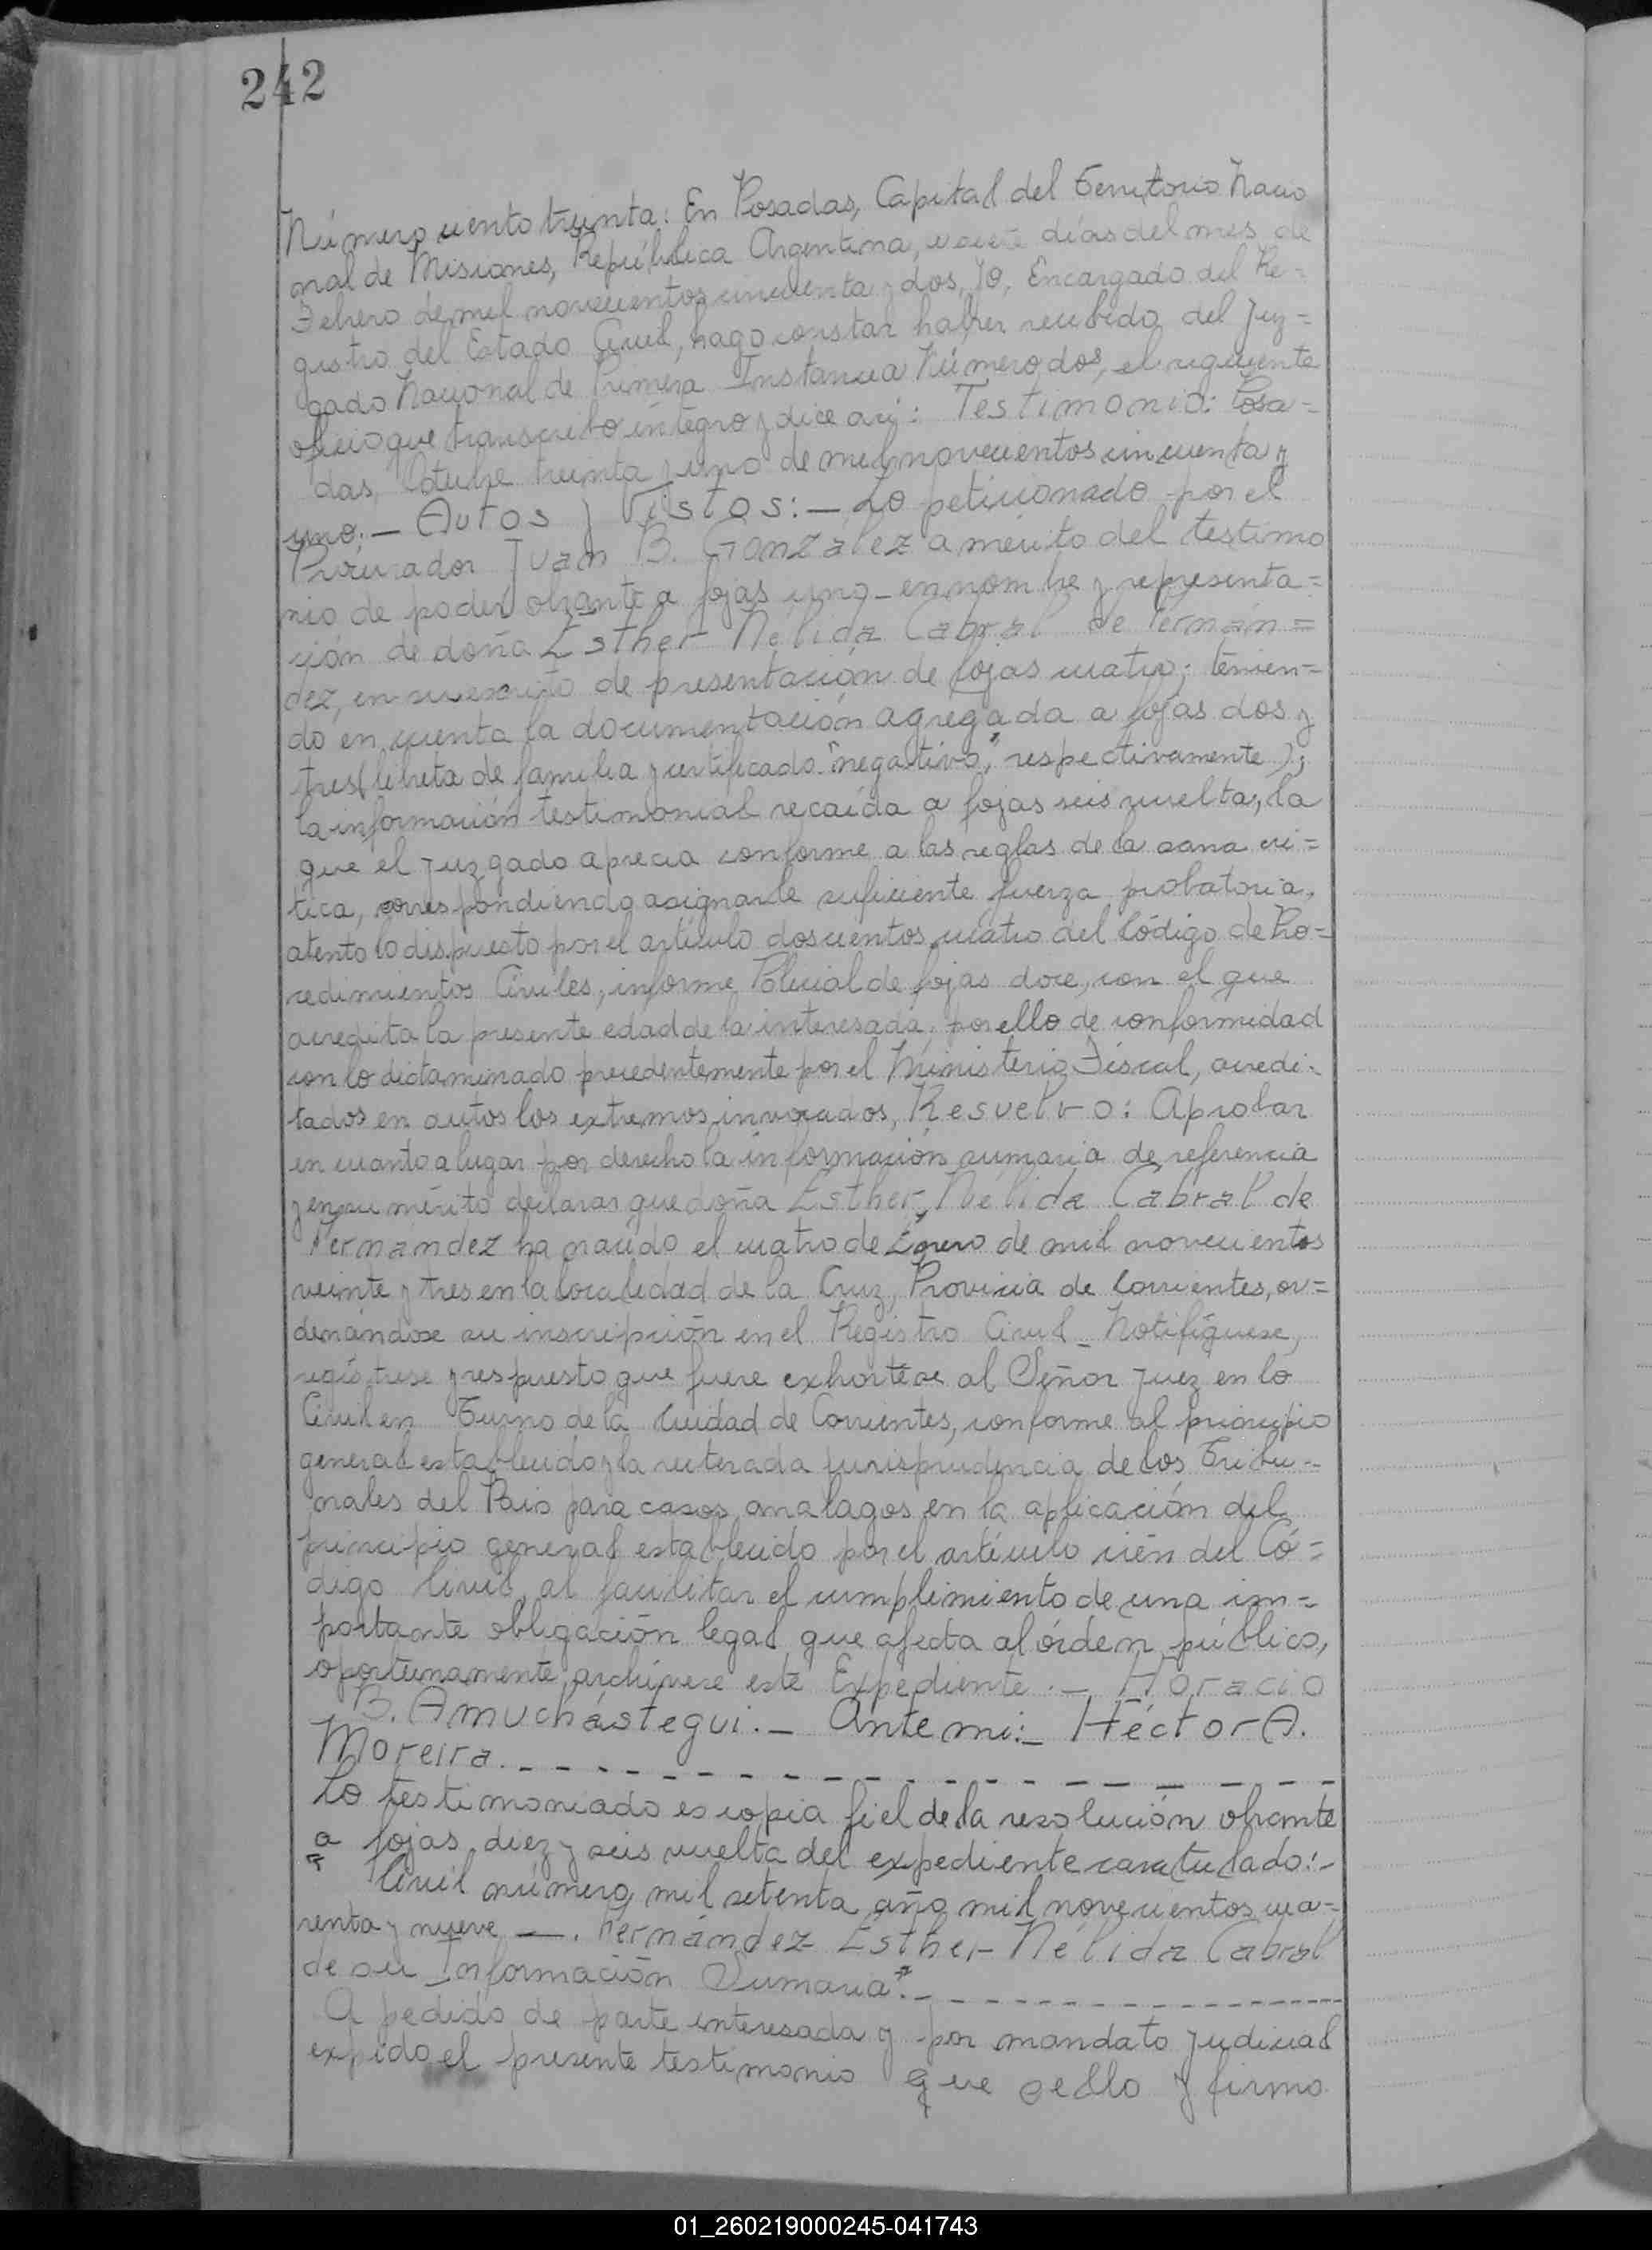 242
Número ciento treinta: En Posadas, Capital del Territorio Nacio
nal de Misiones, República Argentina, a siete días del mes de
Febrero de mil novecientos cincuenta y dos, Yo, Encargado del Re=
gistro del Estado Civil, hago constar haber recibido del Juz=
gado Nacional de Primera Instancia Número dos, el siguiente
oficio que transcribo íntegro y dice asi: Testimonio: Posa=
das, Octubre treinta y uno de mil novecientos cincuenta y
uno.- Autos y Vistos:- Lo peticionado por el
Procurador Juan B. González a mérito del testimo
nio de poder obrante a fojas uno- en nombre y representa=
ción de doña Esther Nélida Cabral de Fernán=
dez, en su escrito de presentación de fojas cuatro; tenien=
do en cuenta la documentación agregada a fojas dos y
tres (libreta de familia y certificado "negativo", respectivamente);
la información testimonial recaída a fojas seis vuelta, la
que el juzgado aprecia conforme a las reglas de la sana crí=
tica, correspondiendo asignarle suficiente fuerza probatoria,
atento lo dispuesto por el artículo doscientos cuatro del Código de Pro=
cedimientos Civiles, informe Policial de fojas doce, con el que
acredita la presente edad de la interesada; por ello de conformidad
con lo dictaminado precedentemente por el Ministerio Fiscal, acredi-
tados en autos los extremos invocados, Resuelvo: Aprobar
en cuanto a lugar por derecho la información sumaria de referencia
y en su mérito declarar que doña Esther Nélida Cabral de
Fernandez ha nacido el cuatro de Enero de mil novecientos
veinte y tres en la localidad de la Cruz, Provicia de Corrientes, or=
denándose su inscripción en el Registro Civil - Notifíquese,
regístrese y respuesto que fuere exhórtese al Señor Juez en lo
Civil en Turno de la Ciudad de Corrientes, conforme al principio
general establecido y la reiterada jurisprudencia de los Tribu-
nales del Pais para casos analagos en la aplicación del
principio general establecido por el artículo cién del Có=
digo Civil, al facilitar el cumplimiento de una im=
portante obligación legal que afecta al órden público,
oportunamente archívese este Expediente.- Horacio
B. Amuchástegui.- Ante mi:- Héctor A.
Moreira.- - - - - - - - - - - - - - - - - -
Lo testimoniado es copia fiel de la resolución obrante
a fojas diez y seis vuelta del expediente caratulado:-
"Civil número mil setenta año mil novecientos cua=
renta y nueve —. Fernández Esther Nélida Cabral
de su Información Sumaria".- - - - - - - - - - - -
A pedido de parte interesada y por mandato judicial
expido el presente testimonio que sello y firmo
01_260219000245-041743